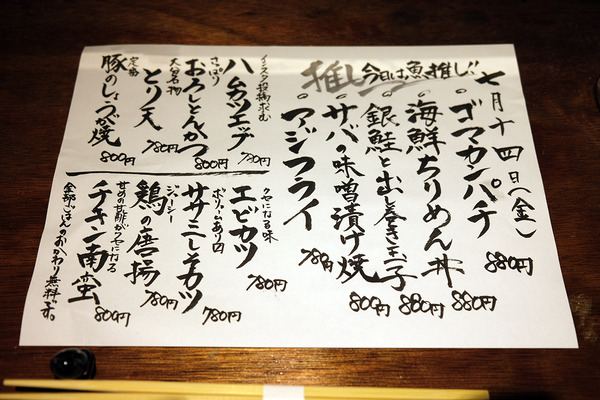 七月十四日(金)
推し 今日は魚推し!!
ゴマカンパチ 880円
海鮮ちりめん丼 880円
銀鮭と出し巻き玉子 880円
サバの味噌漬け焼 800円
アジフライ 780円
インスタ投稿求む
ハムカツエッグ 780円
さっぱり
おろしとんかつ 800円
大分名物
とり天 780円
定番
豚のしょうが焼 800円
クセになる味
エビカツ 780円
ボリュームあり
ササミしそカツ 780円
ジューシー
鶏の唐揚 780円
甘めの甘酢がクセになる
チキン南蛮 800円
全部ごはんのおかわり無料です。